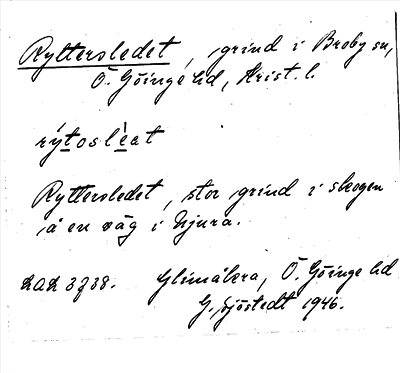 Ryttersledet, grind i Broby sn,
Ö. Göinge hd, Krist. l.
rýtoslèat
Ryttersledet, stor grind i skogen
å en väg i Njura.
LAL 3738. Glimåkra, Ö. Göinge hd
G. Sjöstedt 1946.